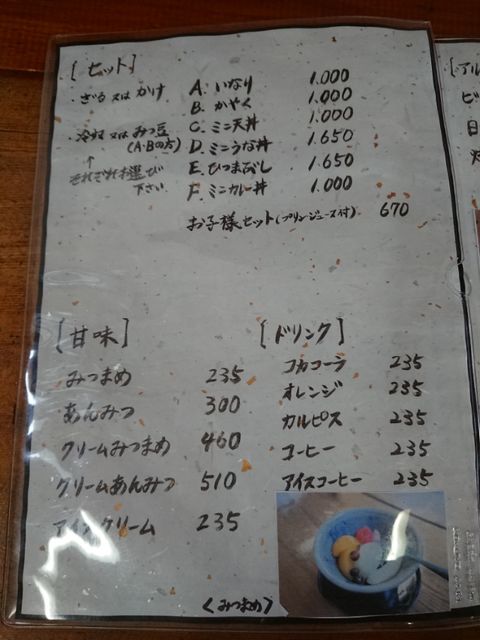 [セット]
・ざる又はかけ
・冷奴又はみつ豆
(A・Bの方)
↑
それぞれお選び
下さい
A. いなり 1.000
B. かやく 1.000
C. ミニ天丼 1.000
D. ミニうな丼 1.650
E. ひつまぶし 1.650
F. ミニカレー丼 1.000
お子様セット(プリン・ジュース付) 670
[甘味]
みつまめ 235
あんみつ 300
クリームみつまめ 460
クリームあんみつ 510
アイスクリーム 235
[ドリンク]
コカコーラ 235
オレンジ 235
カルピス 235
コーヒー 235
アイスコーヒー 235
<みつまめ>
[アル
ビ
日